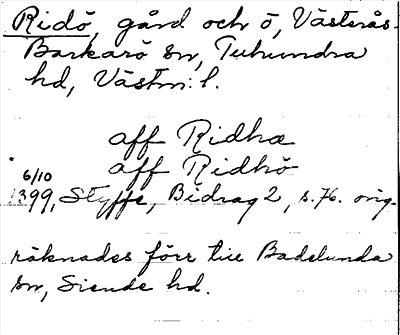 Ridö, gård och ö, Västerås-
Barkarö sn, Tuhundra
hd, Västm: l.
aff Ridhæ
aff Ridhö
6/10
1399, Styffe, Bidrag 2, s. 76. orig.
räknades förr till Badelunda
sn, Siende hd.